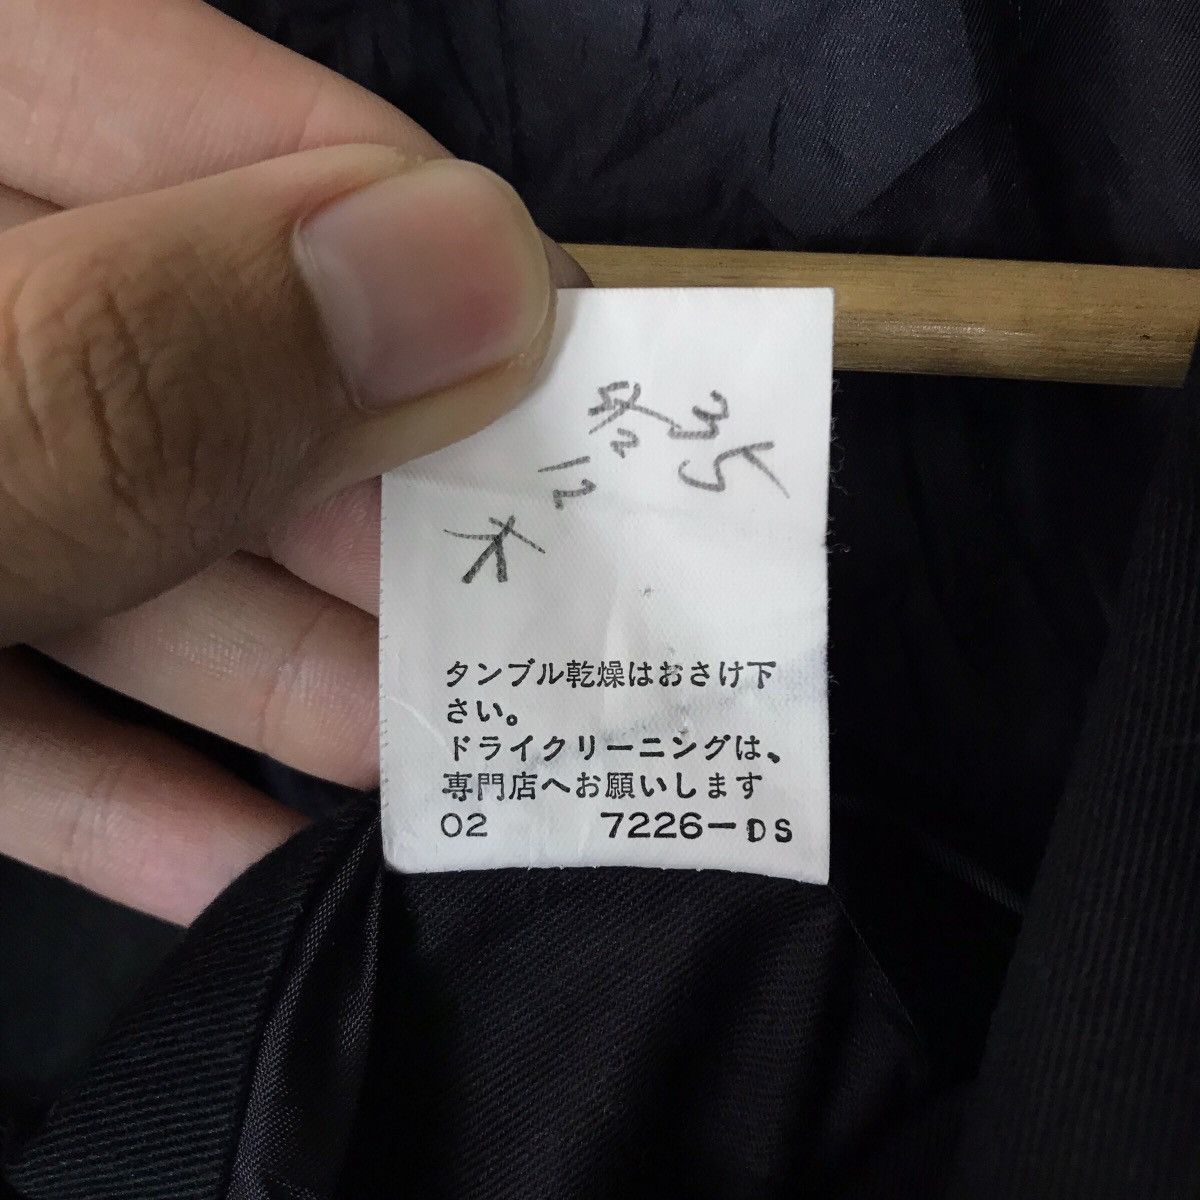 タンブル乾燥はおさけ下
さい。
ドライクリーニングは、
専門店へお願いします
02 7226-DS